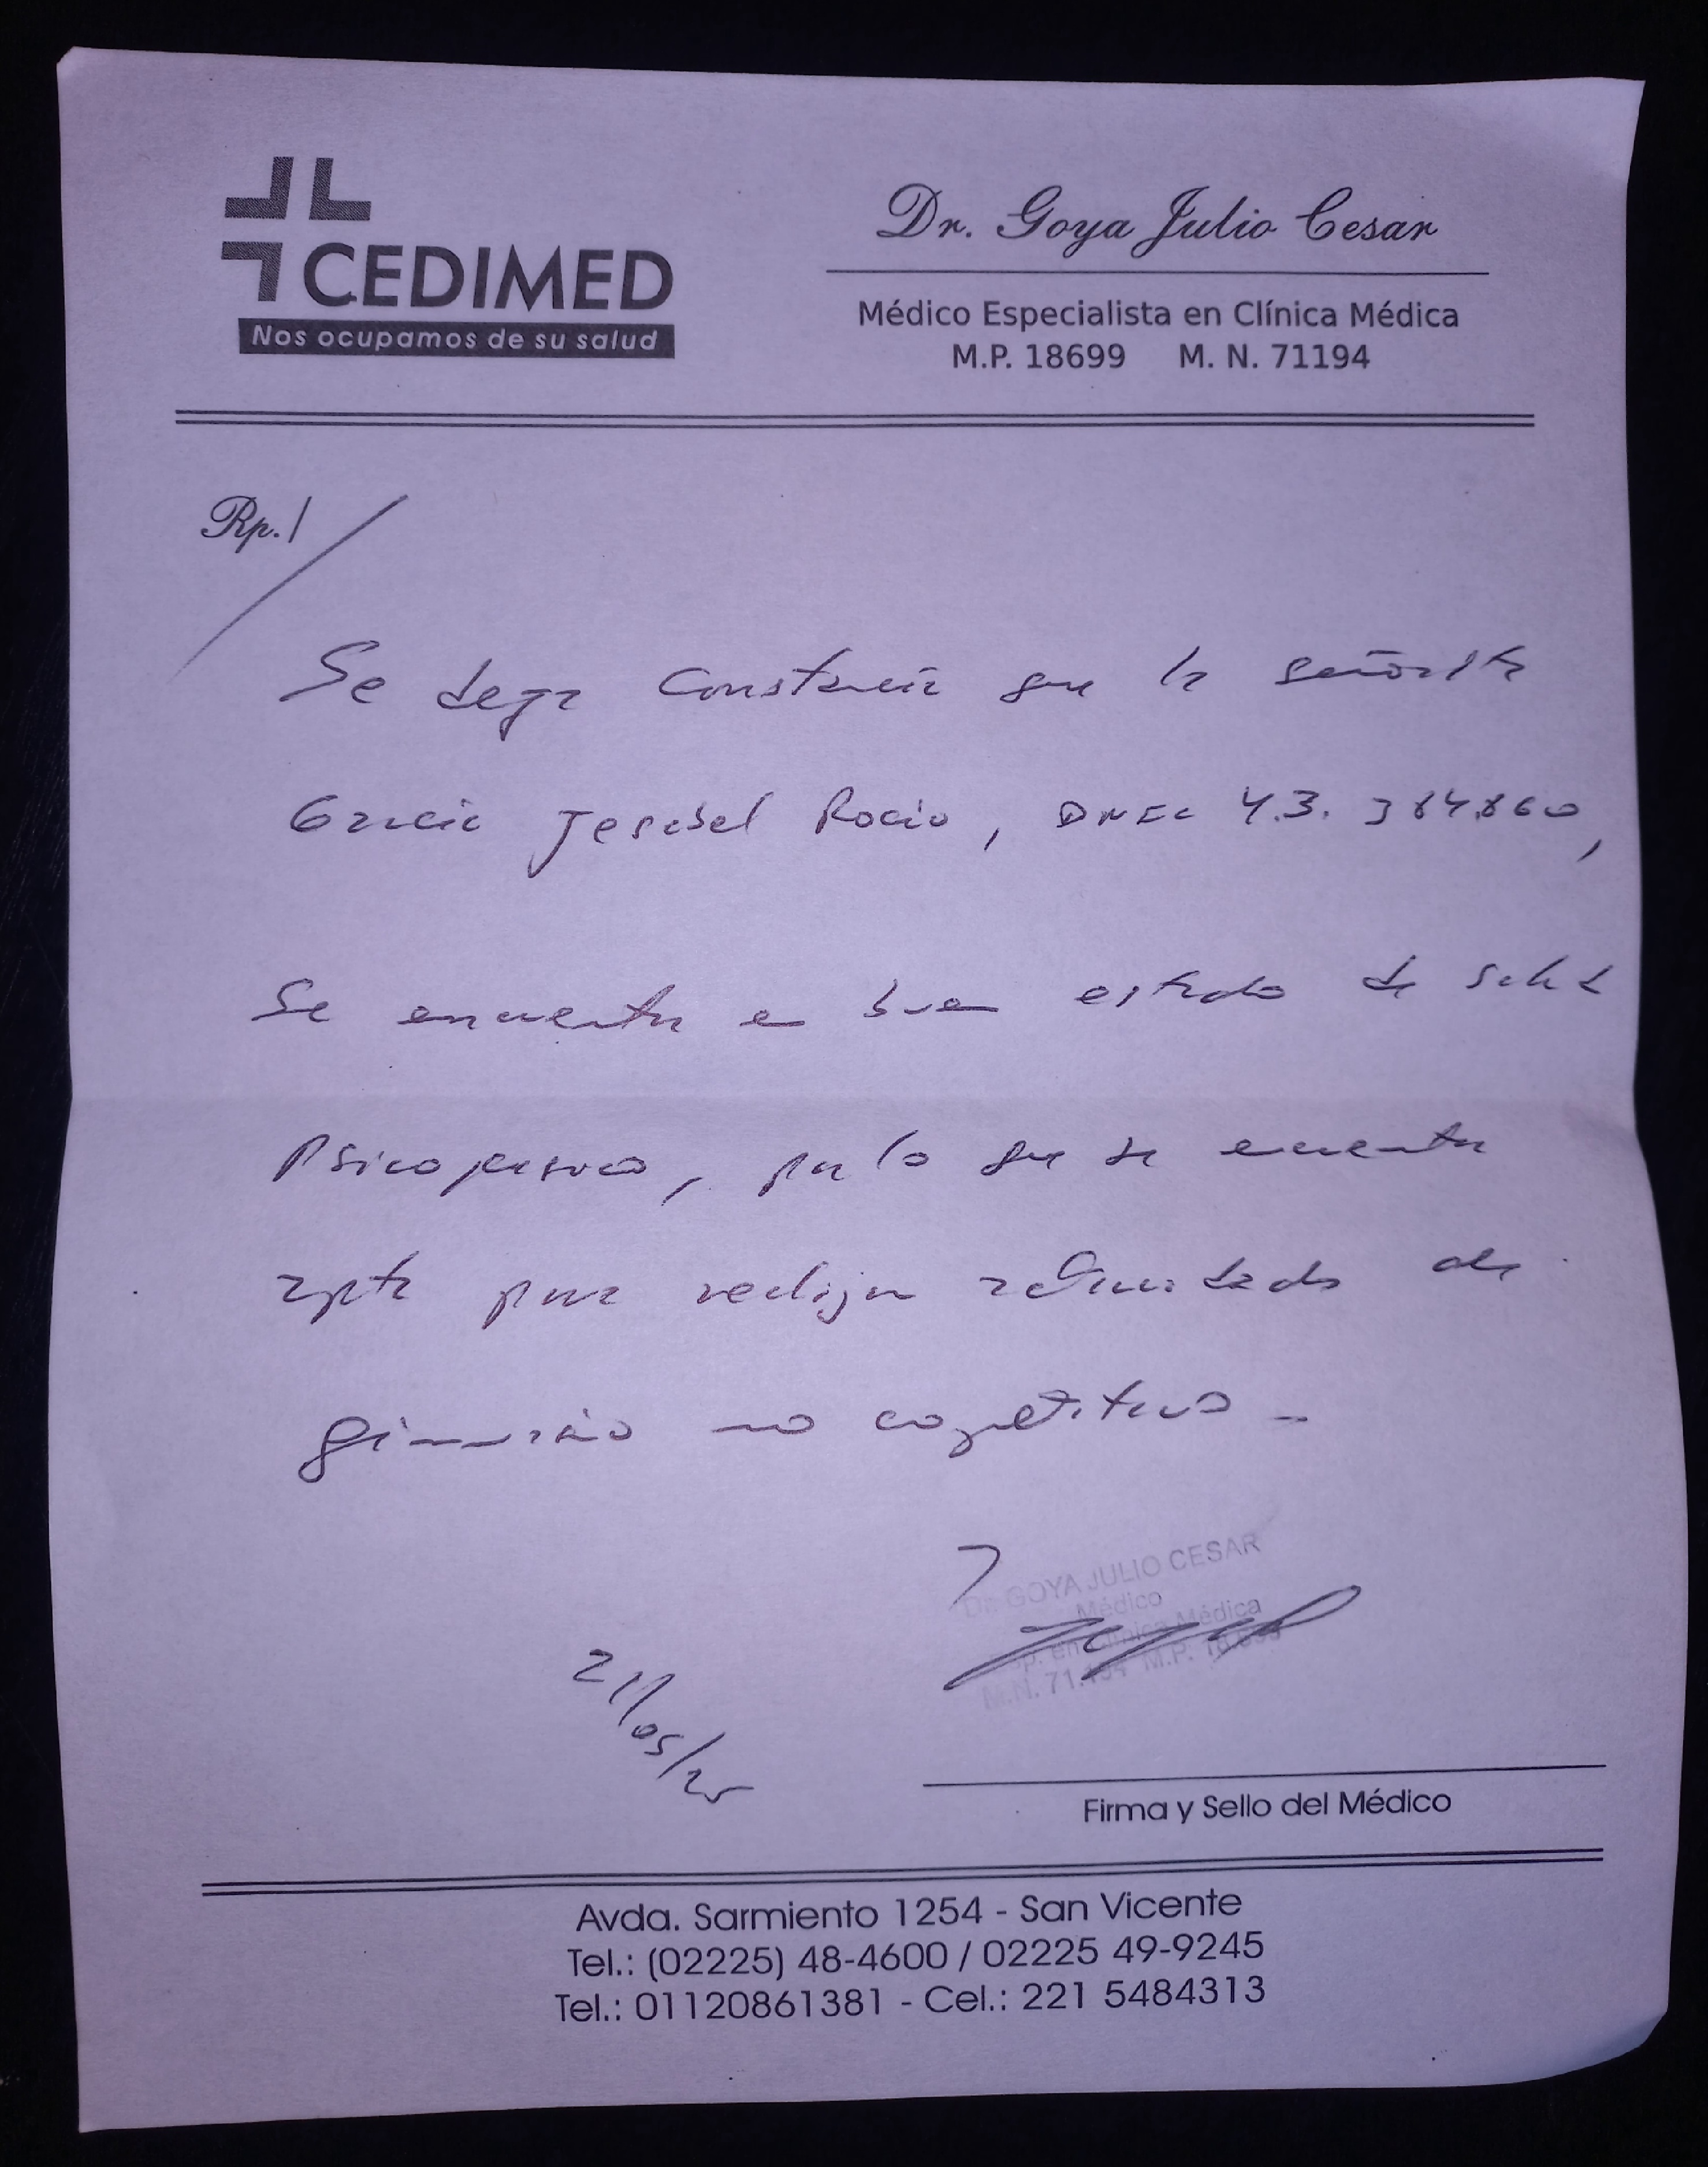 CEDIMED
Nos ocupamos de su salud
Dr. Goya Julio Cesar
Médico Especialista en Clínica Médica
M.P. 18699 M. N. 71194
Rp./
Se deja constancia que la señorita
Garcia Jesabel Rocio, DNI 43.384.860,
Se encuentra en buen estado de salud
Psicofisico, por lo que se encuentra
apta para realizar actividad de
gimnasio no competitivo -
Dr. GOYA JULIO CESAR
Médico
Esp. en Clínica Médica
M.N. 71.194 M.P. 18.699
21/05/25
Firma y Sello del Médico
Avda. Sarmiento 1254 - San Vicente
Tel.: (02225) 48-4600 / 02225 49-9245
Tel.: 01120861381 - Cel.: 221 5484313